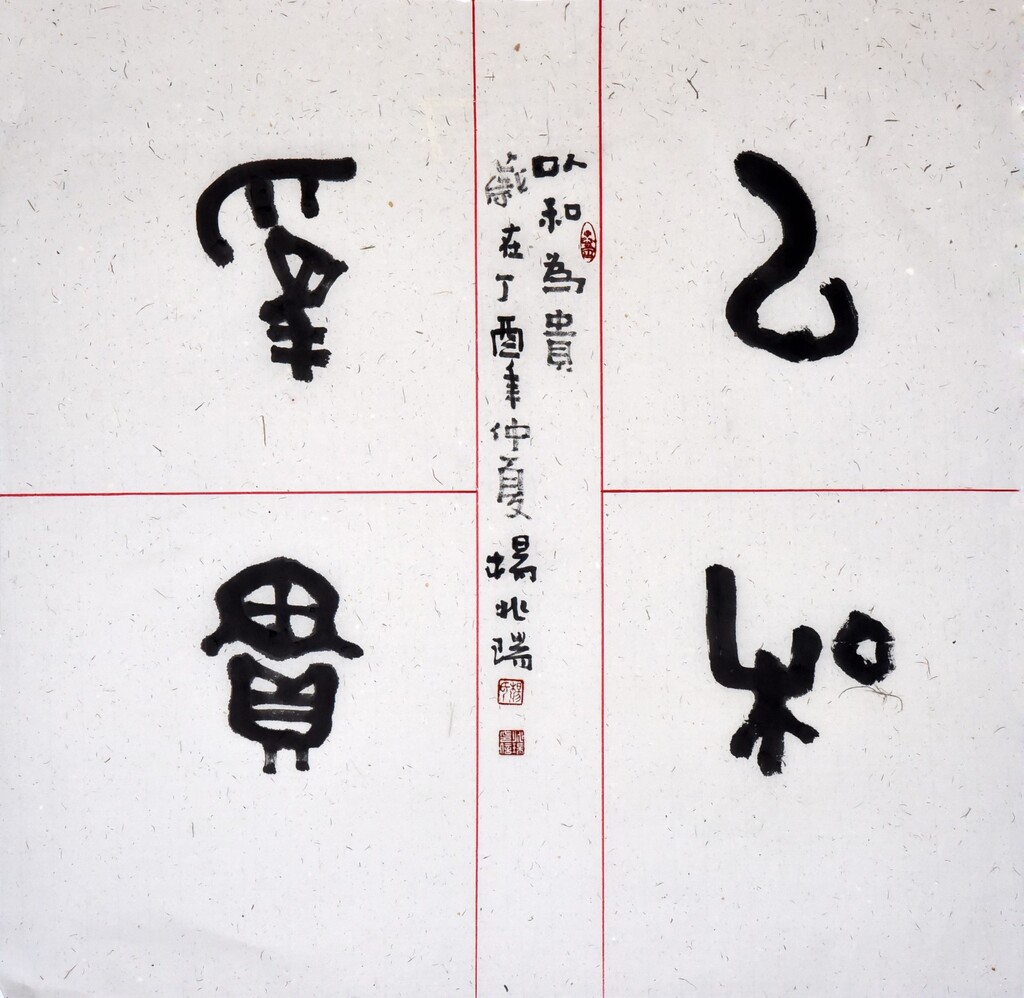 以和
為貴
以和為貴
歲在丁酉年仲夏楊兆瑞